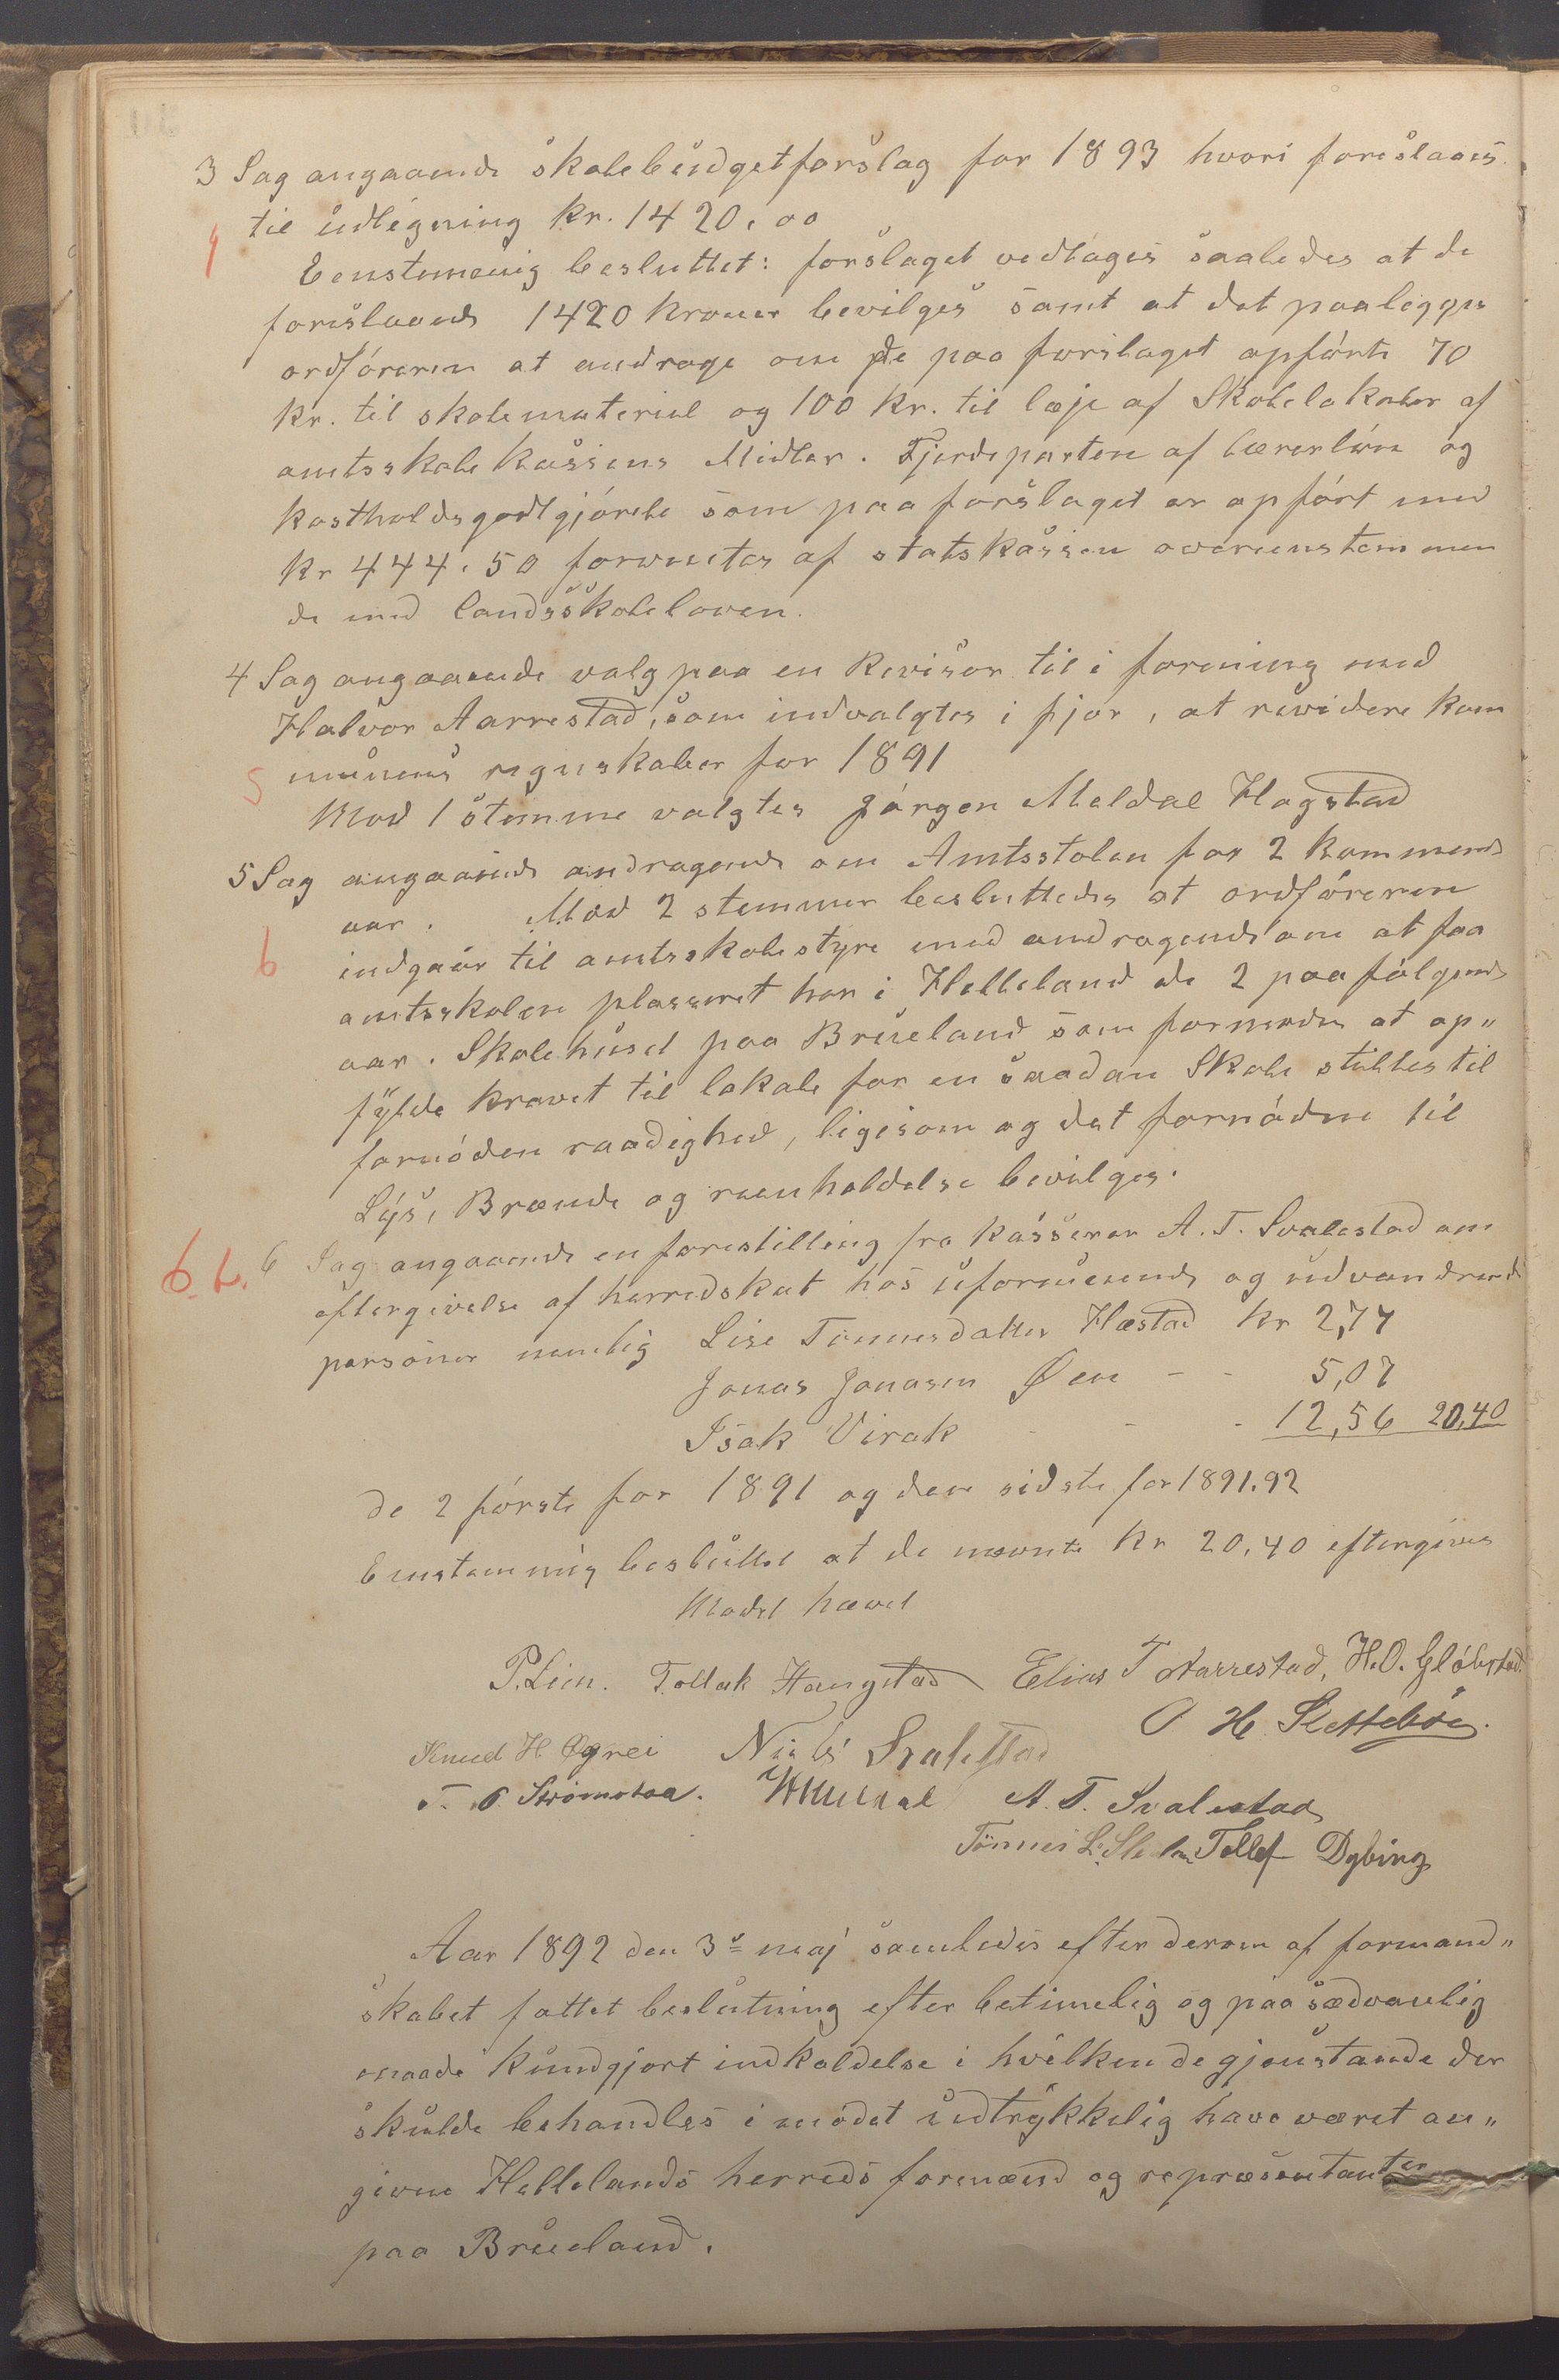 3 Sag angaaende skolebudgetforslag for 1893 hvori foreslaaes
til udligning kr. 1420,00
4
Eenstemmig besluttet: forslaget vedtages saaledes at de
foreslaaede 1420 kroner bevilges samt at det paalegges
ordføreren at andrage om de paa forslaget opførte 70
kr. til skolemateriel og 100 kr. til leje af Skolelokaler af
amtsskolekassens Midler. Fjerdeparten af lærerløn og
kostholdsgodtgjørelse som paa forslaget er opført med
kr 444,50 forventes af statskassen overensstemmen
de med landsskoleloven.
4 Sag angaaende valg paa en Revisor til i forening med
Halvor Aarrestad, som indvalgtes i fjor, at revidere kom
5 munens regnskaber for 1891
Mod 1 stemme valgtes Jørgen Meldal Hogstad
5 Sag angaaende andragende om Amtsskolen for 2 kommende
aar. Mod 2 stemmer besluttedes at ordføreren
6 indgaar til amtsskolestyre med andragende om at faa
amtsskolen plasseret her i Helleland de 2 paafølgende
aar. Skolehuset paa Brueland som formenes at op„
fylde kravet til lokale for en saadan Skole stilles til
fornøden raadighed, ligesom og det fornødne til
Lys, Brænde og reenholdelse bevilges.
6.b. 6 Sag angaaende en forestilling fra kasserer A. T. Svalestad om
eftergivelse af herredskat hos uformuende og udvandrede
personer nemlig Lise Tønnesdatter Hæstad kr 2,77
Jonas Jonasen Øen - - 5,07
Isak Virak - - 12,56 20,40
de 2 første for 1891 og den sidste for 1891.92
Eenstemmig besluttet at de nævnte kr 20,40 eftergives
Mødet hævet
P. Lien. Tollak Haugstad Elias T Aarrestad, H.O. Gløbstad.
O H Slettebøe.
Knud H Øgrei Niels Svalestad
T. O. Strømstoa. A. T. Svalestad
Tønnes L. Tollef Dybing
Aar 1892 den 3e maj samledes efter derom af formand„
skabet fattet beslutning efter betimelig og paa sædvanlig
maade kundgjort indkaldelse i hvilken de gjenstande der
skulde behandles i mødet udtrykkelig have været an„
givne Hellelands herreds formænd og repræsentanter
paa Brueland.